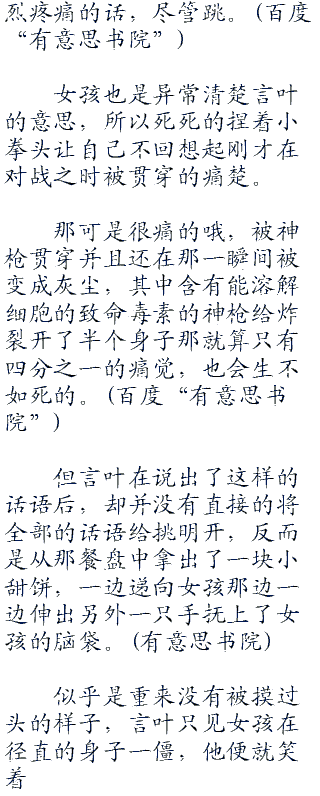 烈疼痛的话，尽管跳。(百度
“有意思书院”)
女孩也是异常清楚言叶
的意思，所以死死的捏着小
拳头让自己不回想起刚才在
对战之时被贯穿的痛楚。
那可是很痛的哦，被神
枪贯穿并且还在那一瞬间被
变成灰尘，其中含有能溶解
细胞的致命毒素的神枪给炸
裂开了半个身子那就算只有
四分之一的痛觉，也会生不
如死的。(百度“有意思书
院”)
但言叶在说出了这样的
话语后，却并没有直接的将
全部的话语给挑明开，反而
是从那餐盘中拿出了一块小
甜饼，一边递向女孩那边一
边伸出另外一只手抚上了女
孩的脑袋。(有意思书院)
似乎是重来没有被摸过
头的样子，言叶只见女孩在
径直的身子一僵，他便就笑
着